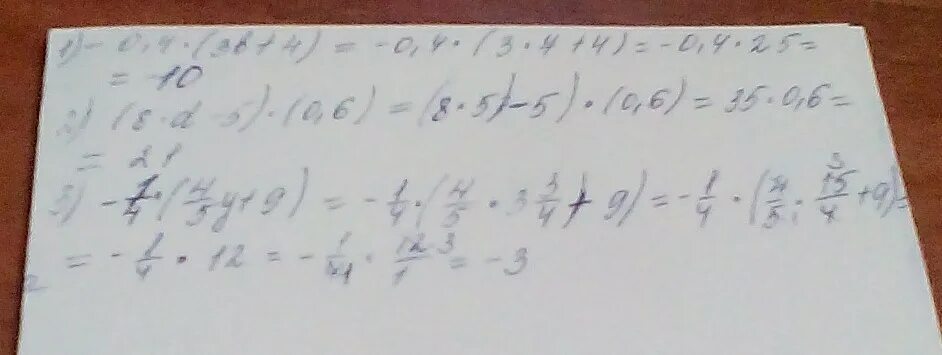 1) - 0,4 · (3b + 4) = -0,4 · (3 · 7 + 4) = -0,4 · 25 =
= -10
2) (8 · d - 5) · (0,6) = (8 · 5) - 5) · (0,6) = 35 · 0,6 =
= 21
3) - 1/4 · (4/5 y + 9) = - 1/4 · (4/5 · 3 3/4 + 9) = - 1/4 · (4/5 · 15/4 + 9) =
= - 1/4 · 12 = - 1/4 · 12/1 3 = -3